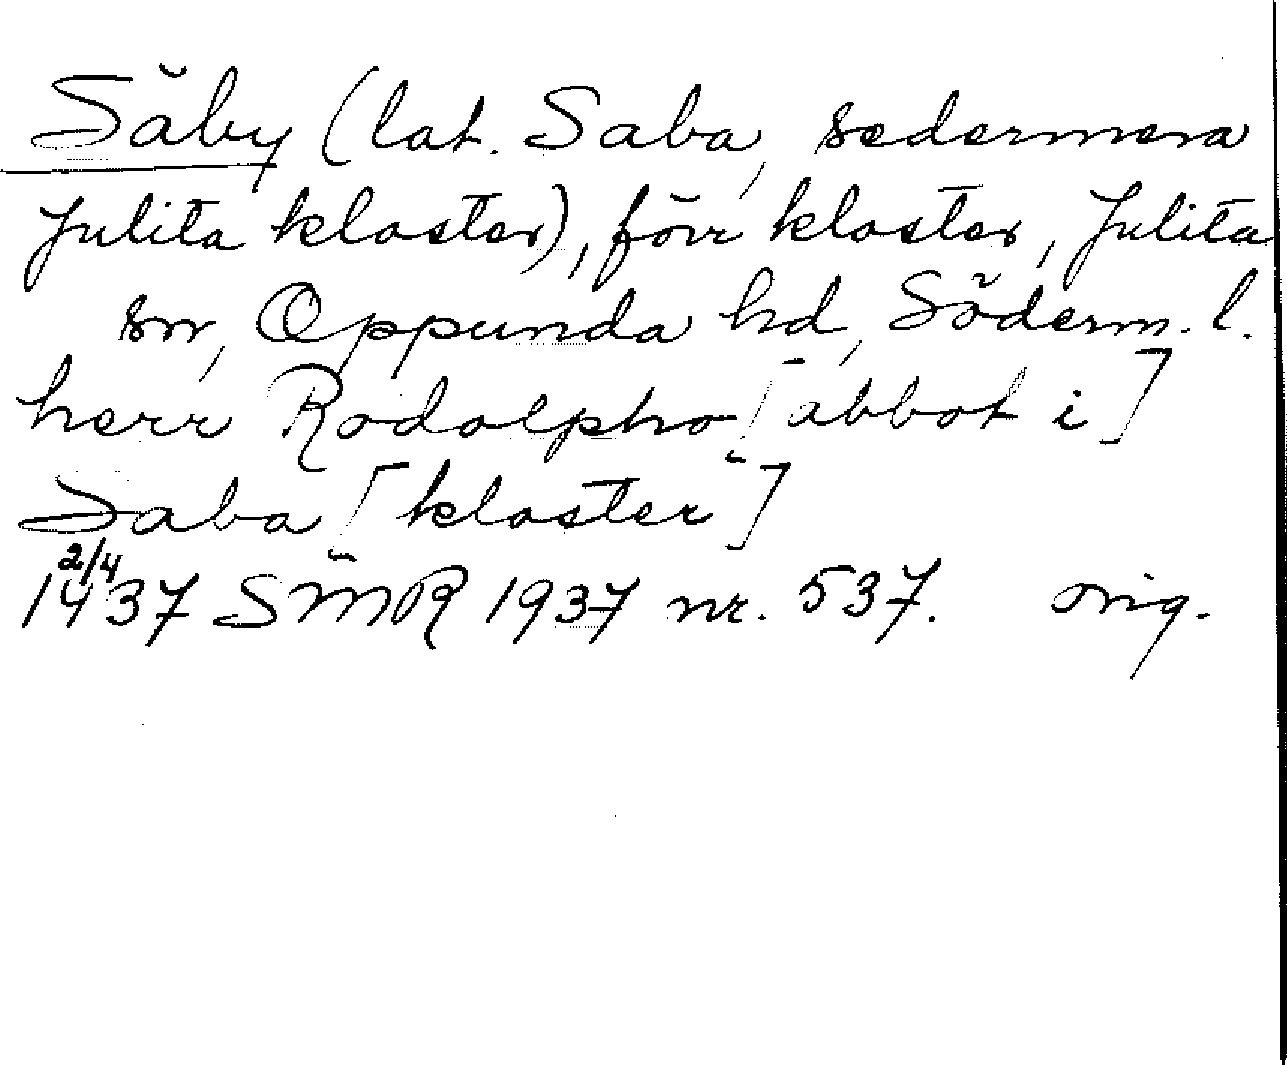 Säby (lat. Saba, sedermera
Julita kloster), förr kloster, Julita
sn, Oppunda hd, Söderm. l.
herr Rodolpho [abbot i]
Saba [kloster]
2/4
1437 SMR 1937 nr. 537. orig.